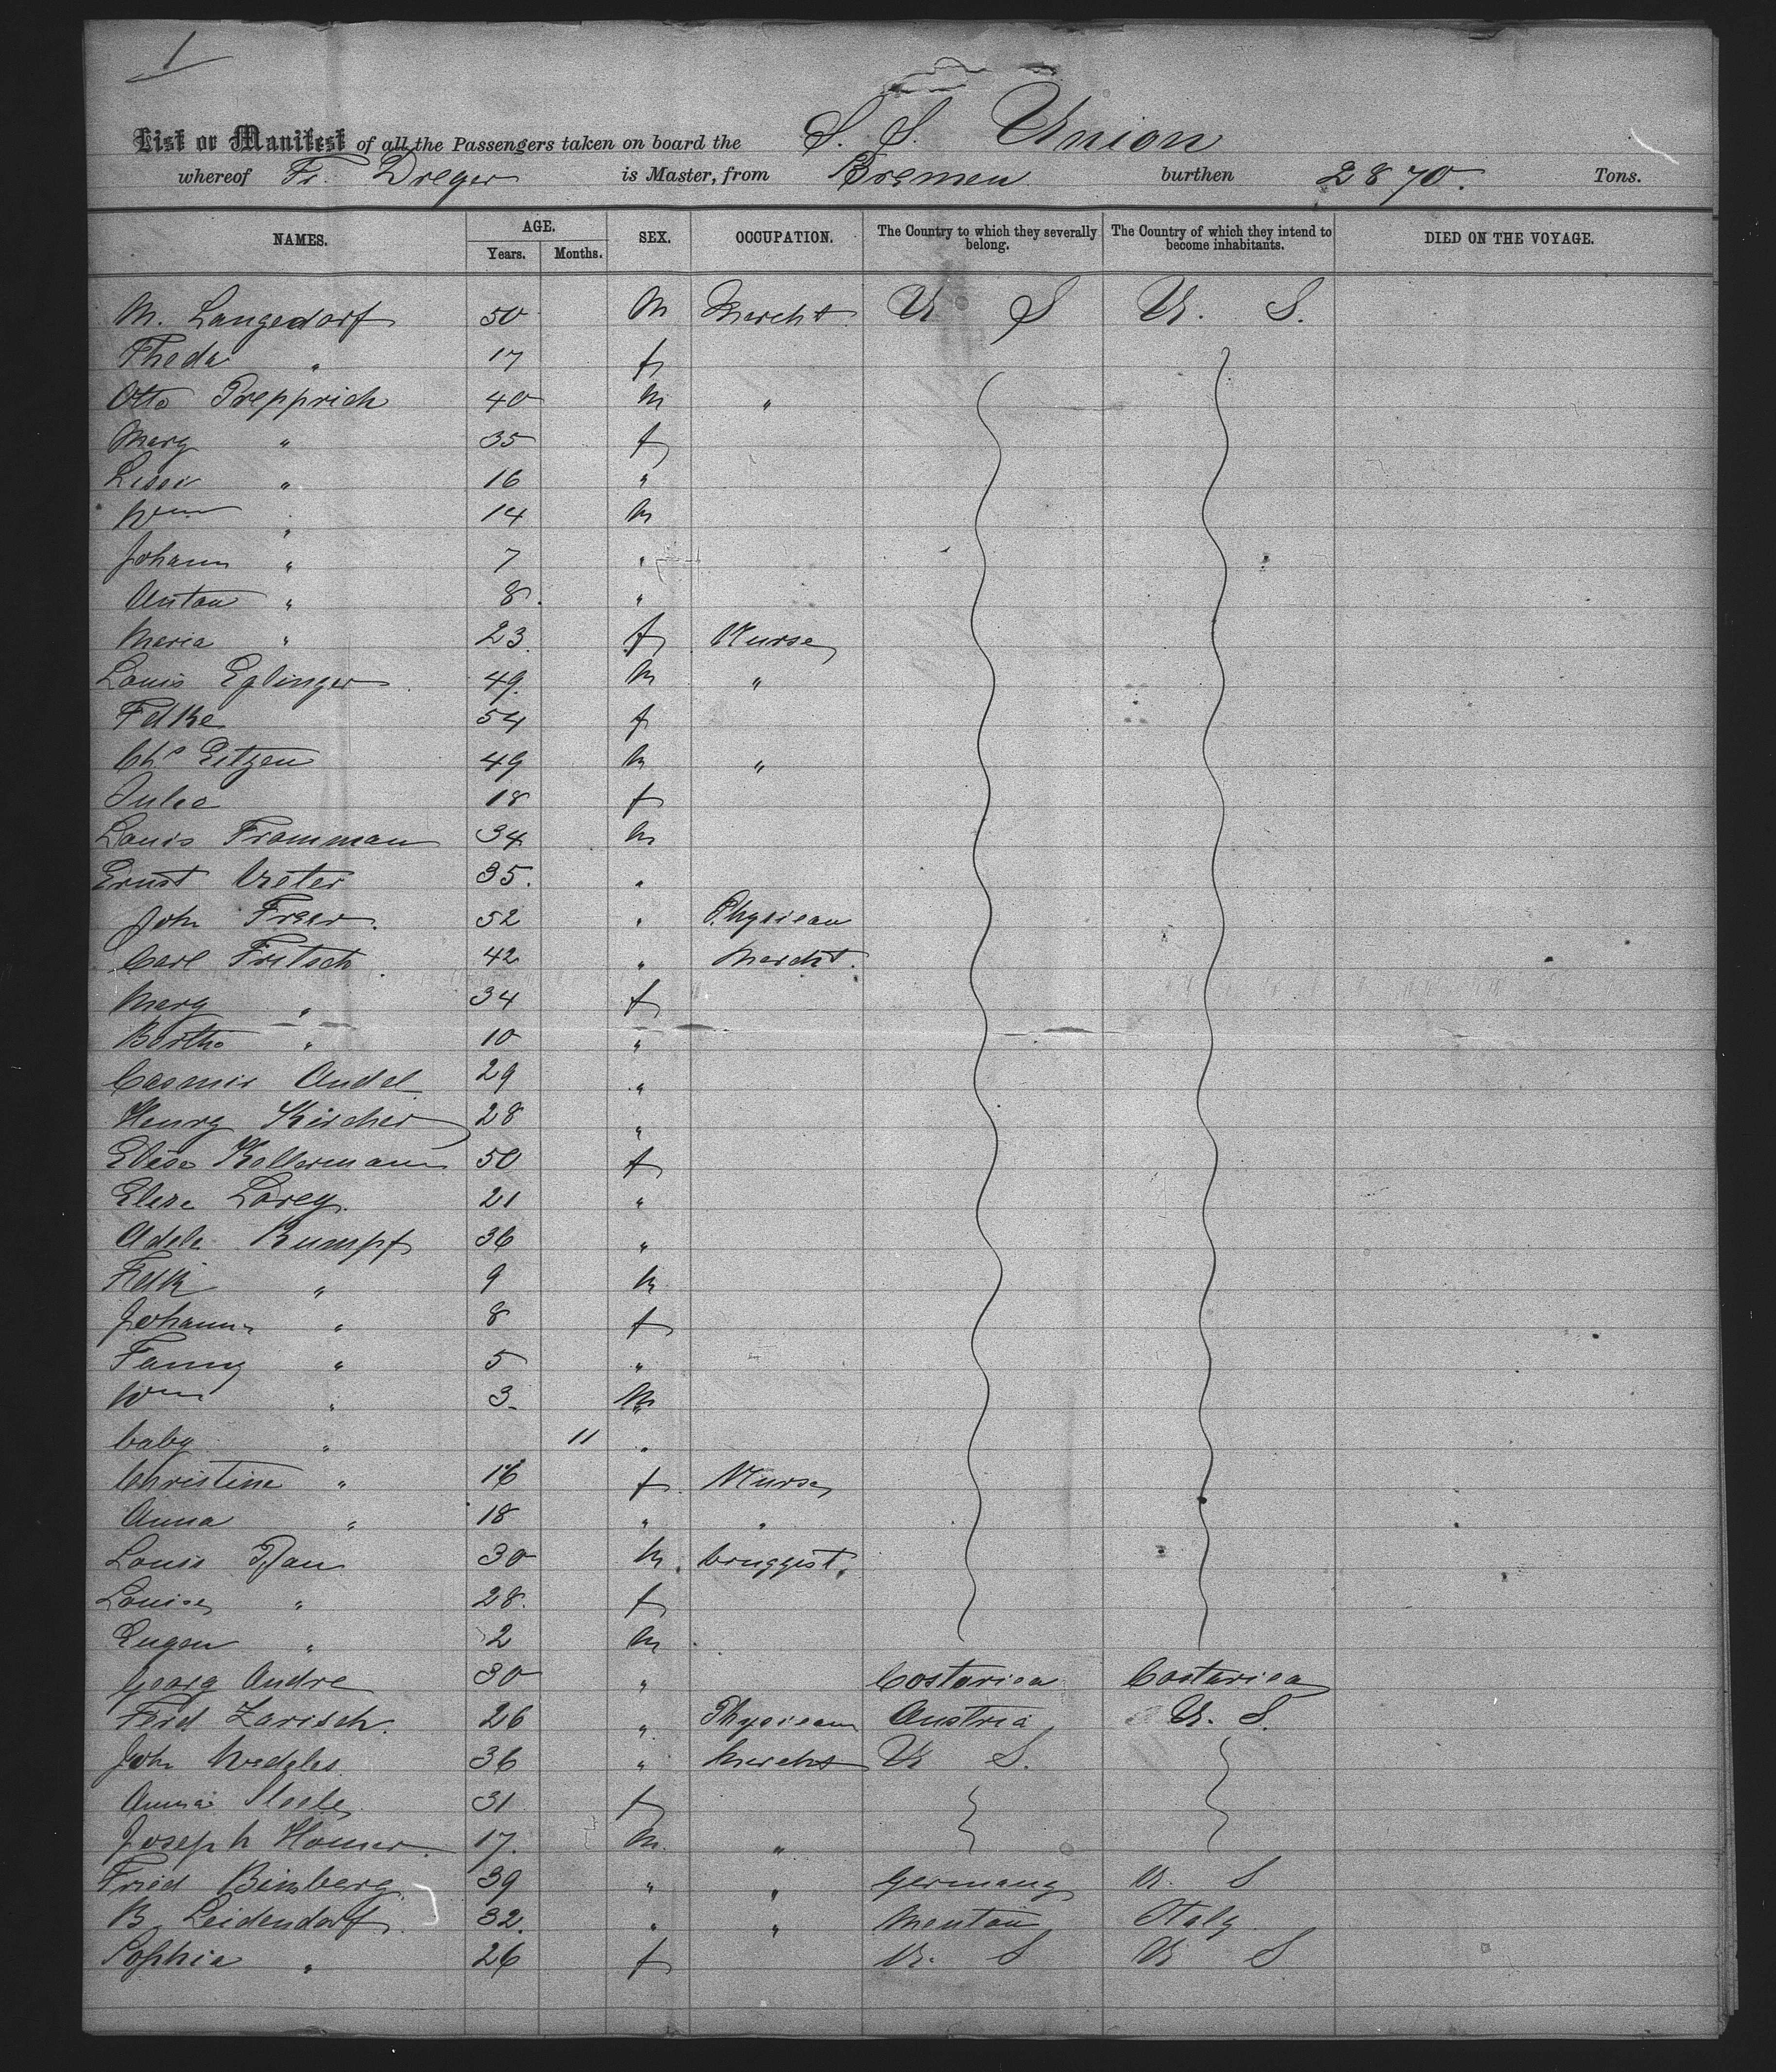 1
List or Manifest of all the Passengers taken on board the S. S. Union
whereof Fr. Dreyer is Master, from Bremen burthen 2870. Tons.
NAMES. AGE. SEX. OCCUPATION. The Country to which they severally belong. The Country of which they intend to become inhabitants. DIED ON THE VOYAGE.
Years. Months.
M. Langedorf 50 M Mercht U S U. S.
Theda " 17 f
Otto Prepprich 40 M "
Mary " 35 f
16 "
Wm " 14 M
Johann " 7 "
Anton " 8. "
Maria " 23. f Nurse
Louis Eglinger 49. M "
Fdke 54 f
Chs Eitzen 49 M "
Julia 18 f
Louis Fromman 34 M
Ernst 35. "
John Freer. 52 " Physican
Carl Fritsch 42 " Mercht.
Mary " 34 f
Bertha " 10 "
Casmir Andel 29 "
Henry Kircher 28 "
Elise Kellermann 50 f
Elise Lorey. 21 "
Adele Rumpf 36 "
Fdk " 9 M
Johanna " 8 f
Fanny " 5 "
Wm " 3- M
baby " 11 "
Christine " 16 f Nurse
Anna " 18 " "
Louis Rau 30 M druggist.
Louise " 28. f
Eugen " 2 M
Georg Andre 30 " Costarica Costarica
Ferd Zarisch. 26 " Physican Austria U. S.
John 36 " Mercht U S.
Anna 31 f
Joseph Homer. 17. M. "
Fried Bimberg 39 " " Germany U. S
B. Leidendorf. 32. " " Mentou Italy
Sophia " 26 f U. S U S